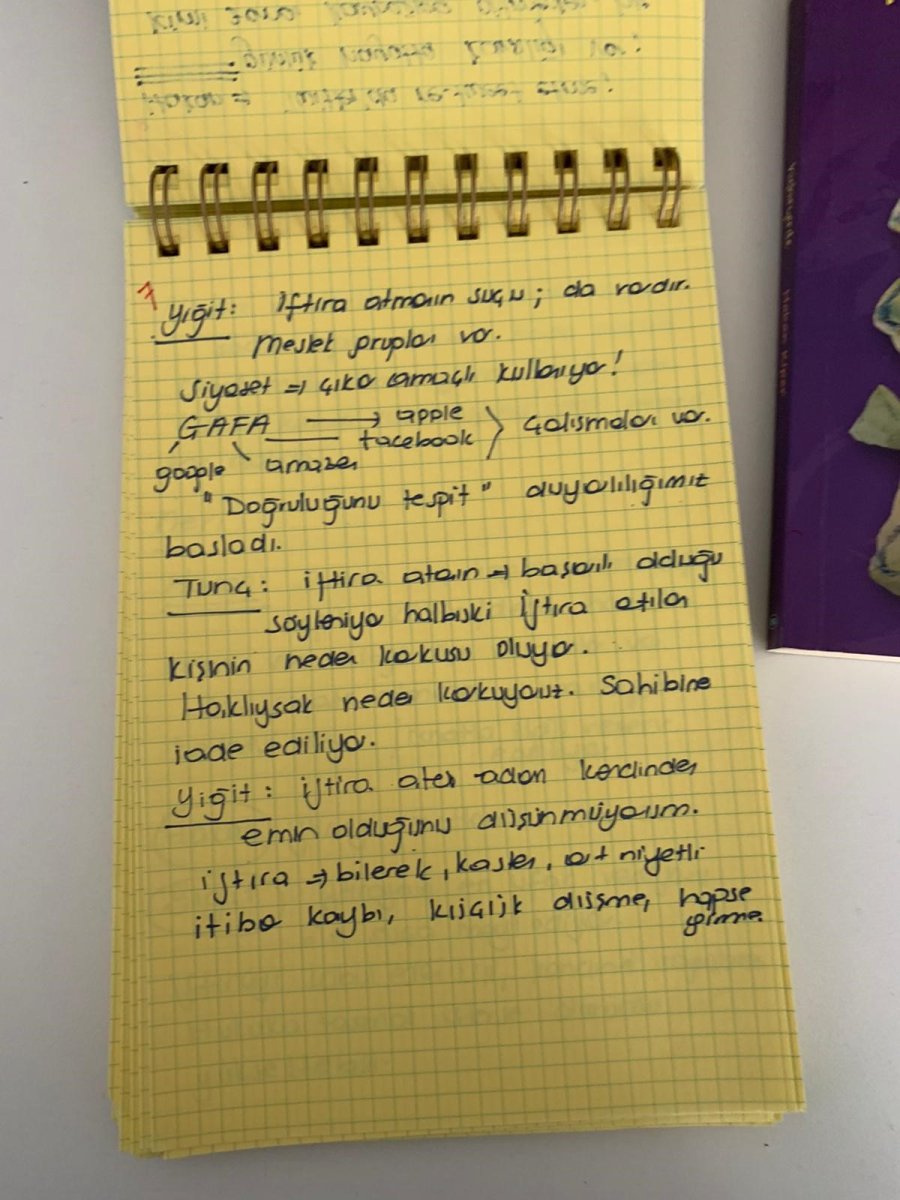 7
Yiğit: iftira atmanın suçu; da vardır.
Meslek grupları var.
Siyaset ⇒ çıkar amaçlı kullanıyo!
GAFA → apple
facebook } çalışmaları var.
google amazon
"Doğruluğunu tespit" duyarlılığımız
başladı.
Tunç: iftira atanın → başarılı olduğu
söyleniyo halbuki iftira atılan
kişinin neden korkusu oluyo.
Haklıysak neden korkuyoruz. Sahibine
iade ediliyo.
Yiğit: iftira atan adam kendinden
emin olduğunu düşünmüyorum.
iftira ⇒ bilerek, kasten, art niyetli
itibar kaybı, küçük düşme, hapse
girme.
Hakan Kıper